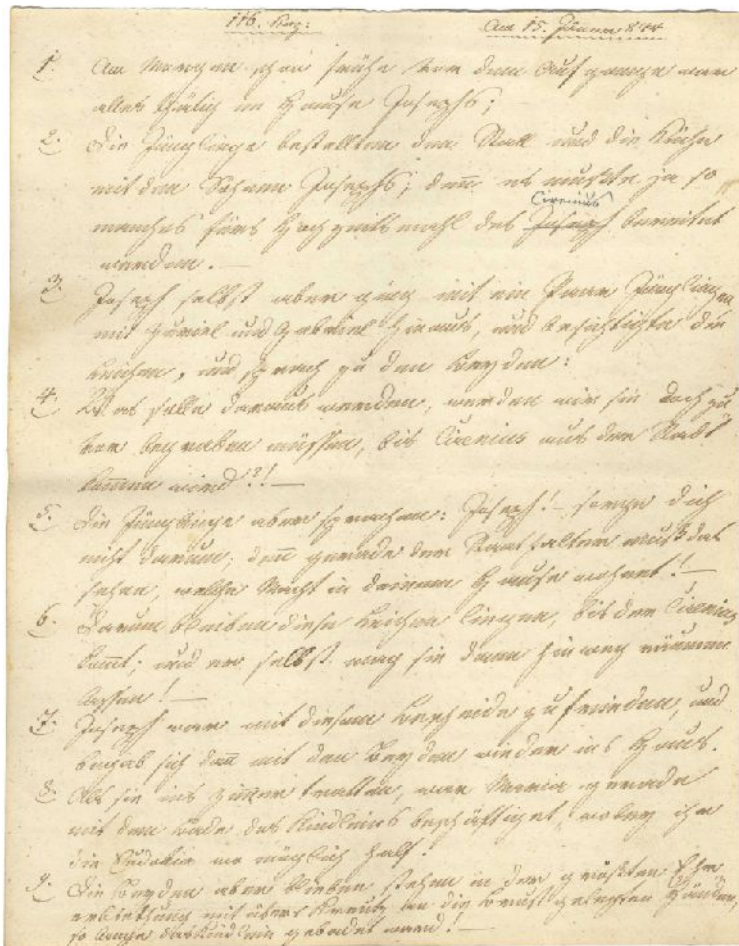 116. Kap:
Am 15. Jänner 844
1. Am Morgen schon frühe vor dem Aufgange war
alles thätig im Hause Josephs;
2. Die Jünglinge bestellten den Stall und die Küche
mit den Söhnen Josephs; denn es mußte ja so
Cirenius
manches fürs Hochzeitsmahl des Joseph bereitet
werden. —
3. Joseph selbst aber ging mit ein Paar Jünglingen
mit Zuriel und Gabriel hinaus, und besichtigte die
Leichen, und sprach zu den Beyden:
4. Was solle daraus werden, werden wir sie doch zu
vor begraben müssen, bis Cirenius aus der Stadt
kommen wird?! —
5. Die Jünglinge aber sprachen: Joseph! — sorge dich
nicht darum; denn gerade der Statthalter muß das
sehen, welche Macht in deinem Hause wohnet! —
6. Darum bleiben diese Leichen liegen, bis der Cirenius
kommt; und er selbst mag sie dann hinweg räumen
lassen! —
7. Joseph war mit diesem Bescheide zufrieden, und
begab sich dann mit den Beyden wieder ins Haus.
8. Als sie ins Zimmer tratten, war Maria gerade
mit dem Bade des Kindleins beschäftiget, wobey ihr
die Eudokia wo möglich half.
9. Die Beyden aber blieben stehen in der größten Ehr
erbiethung mit übers Kreutz an die Brust gelegten Händen,
so lange das Kindlein gebadet ward! —